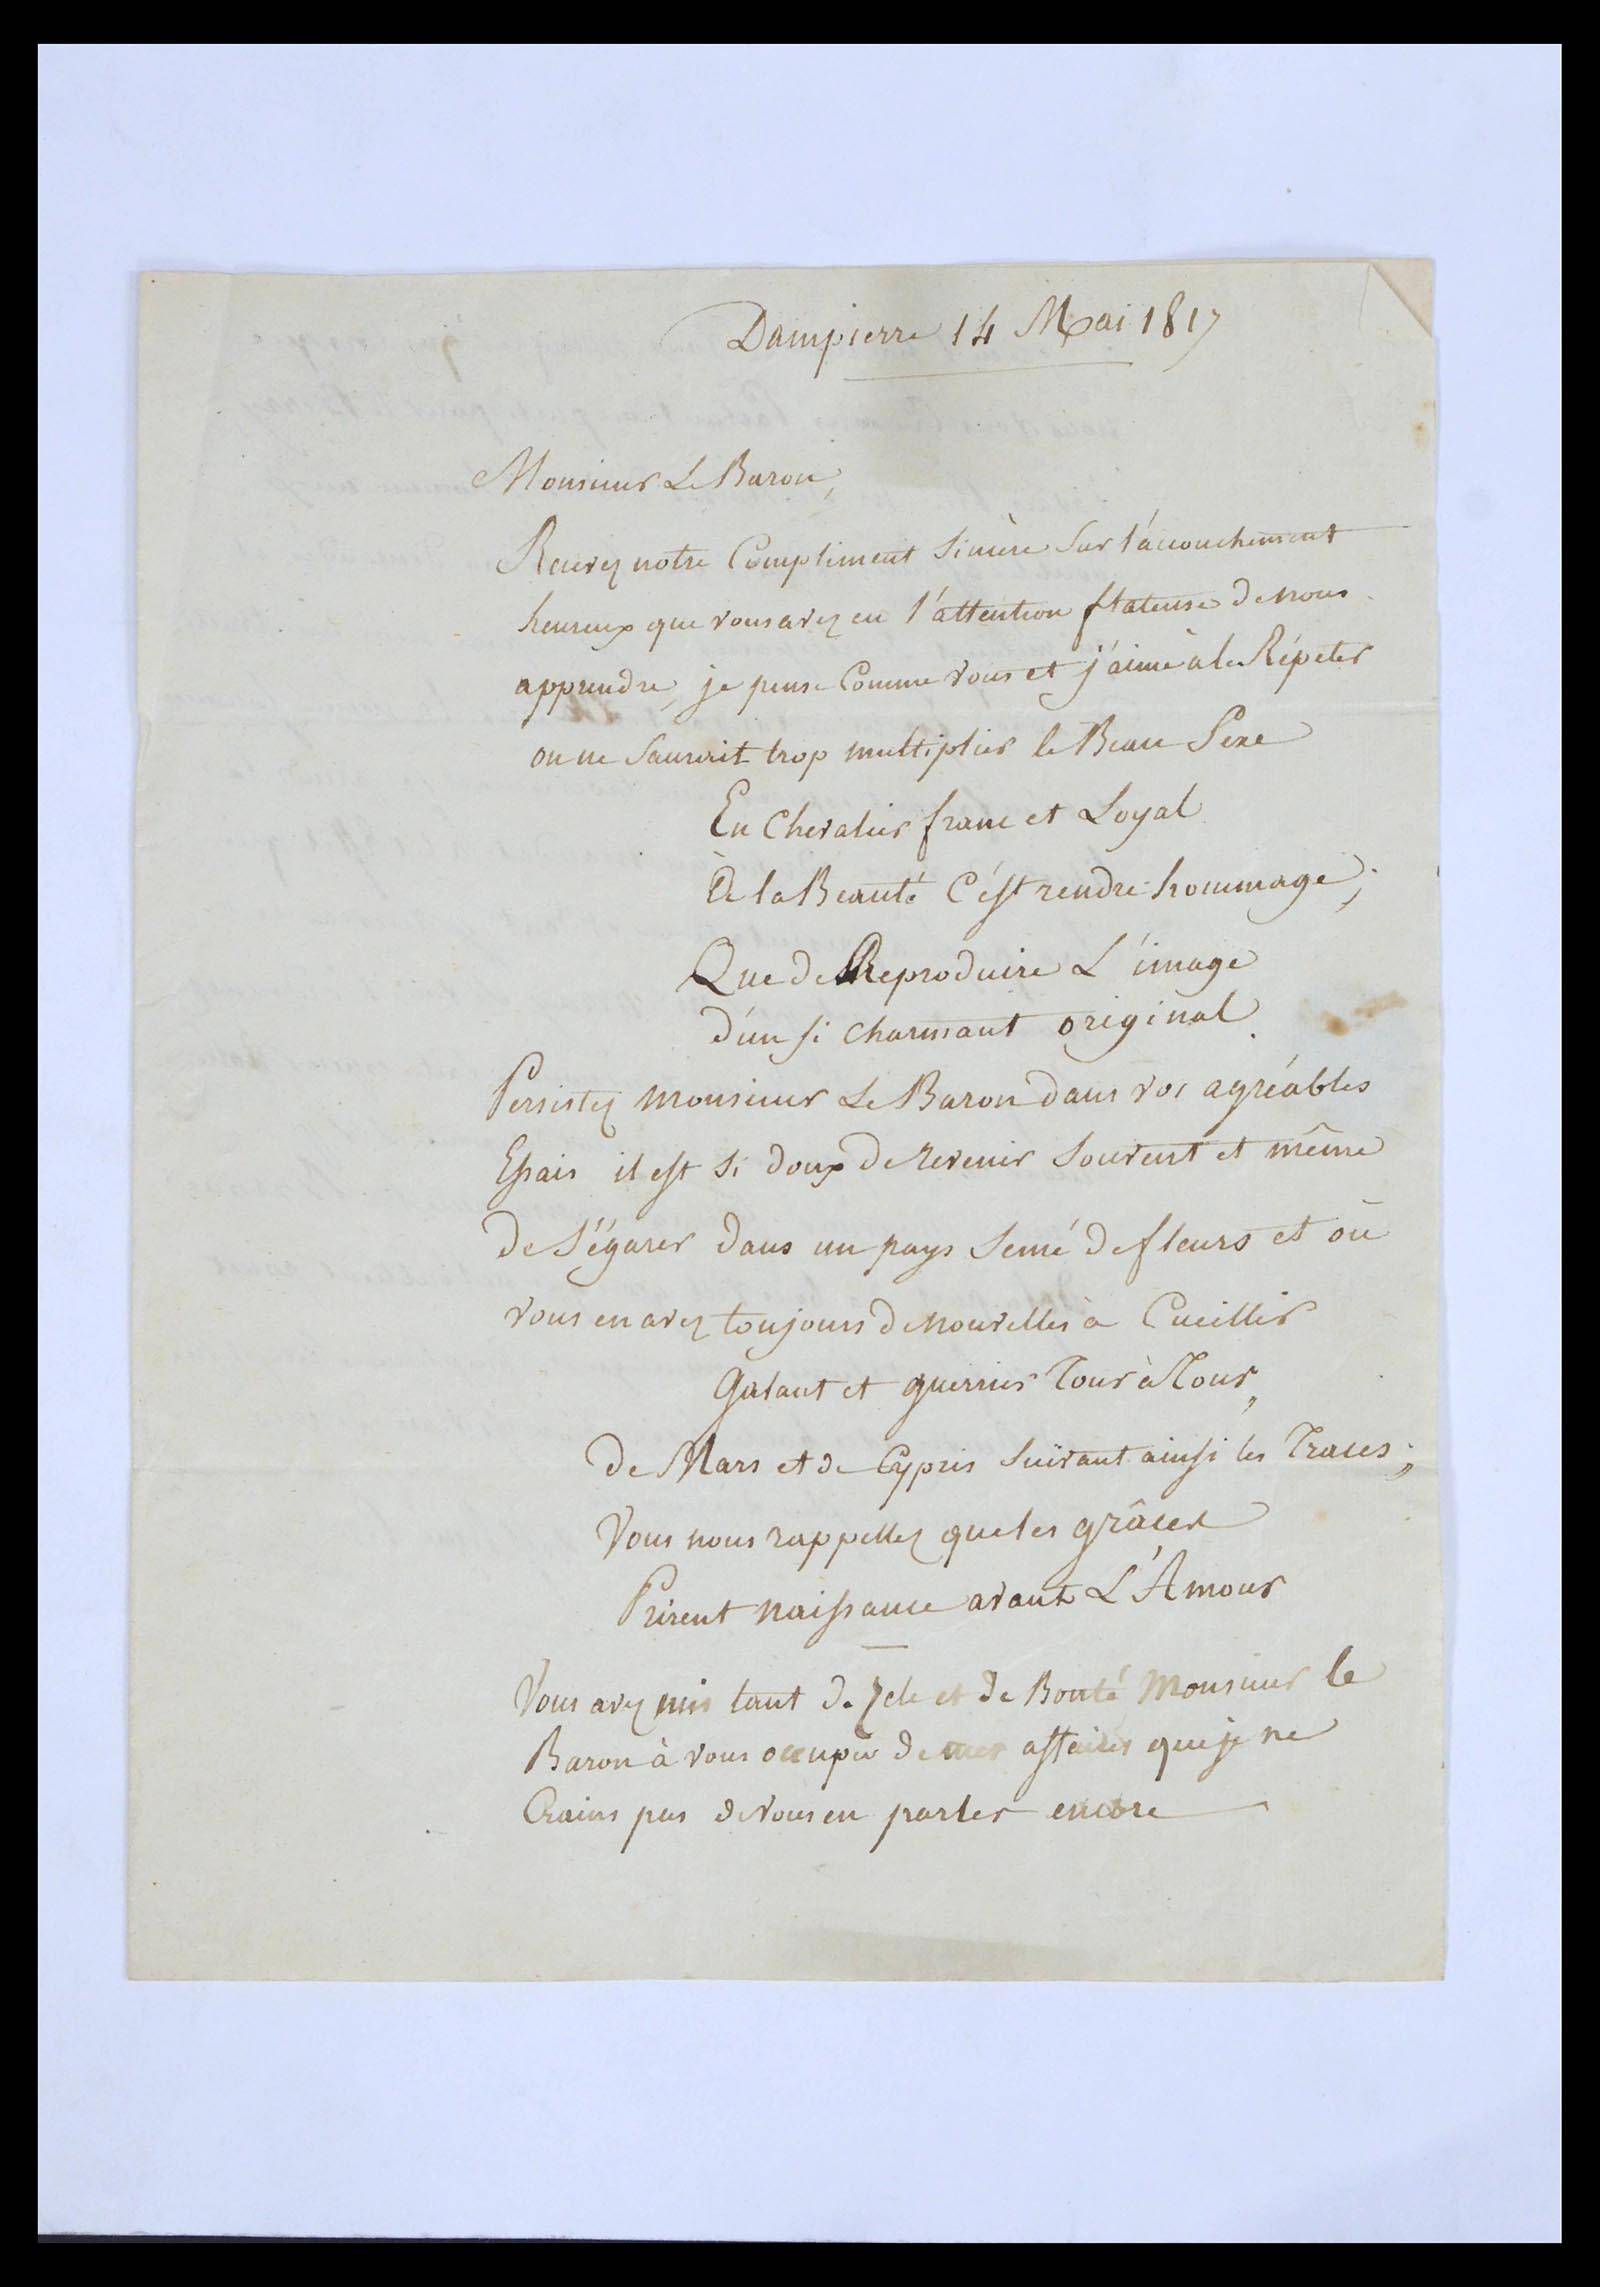 Dampierre 14 Mai 1817
Monsieur Le Baron,
Recevez notre Compliment Sincère Sur l'accouchement
heureux que vous avez eu l'attention flateuse de nous
apprendre, je pense Comme vous et j'aime à le Répeter
on ne Sauroit trop multiplier le Beau Sexe
En Chevalier franc et Loyal
À la Beauté C'est rendre hommage,
Que de Reproduire L'image
d'un si charmant original.
Persistez monsieur Le Baron dans vos agréables
Essais il est si doux de revenir Souvent et même
de S'égarer dans un pays Semé de fleurs et où
vous en avez toujours de nouvelles à Cueillir
Galant et guerrier Tour à Tour,
de Mars et de Cypris Suivant ainsi les Traces;
Vous nous rappellez que les grâces
Prirent naissance avant L'Amour
Vous avez mis tant de Zele et de Bonté Monsieur le
Baron à vous occuper de mes affaires que je ne
Crains pas de vous en parler encore